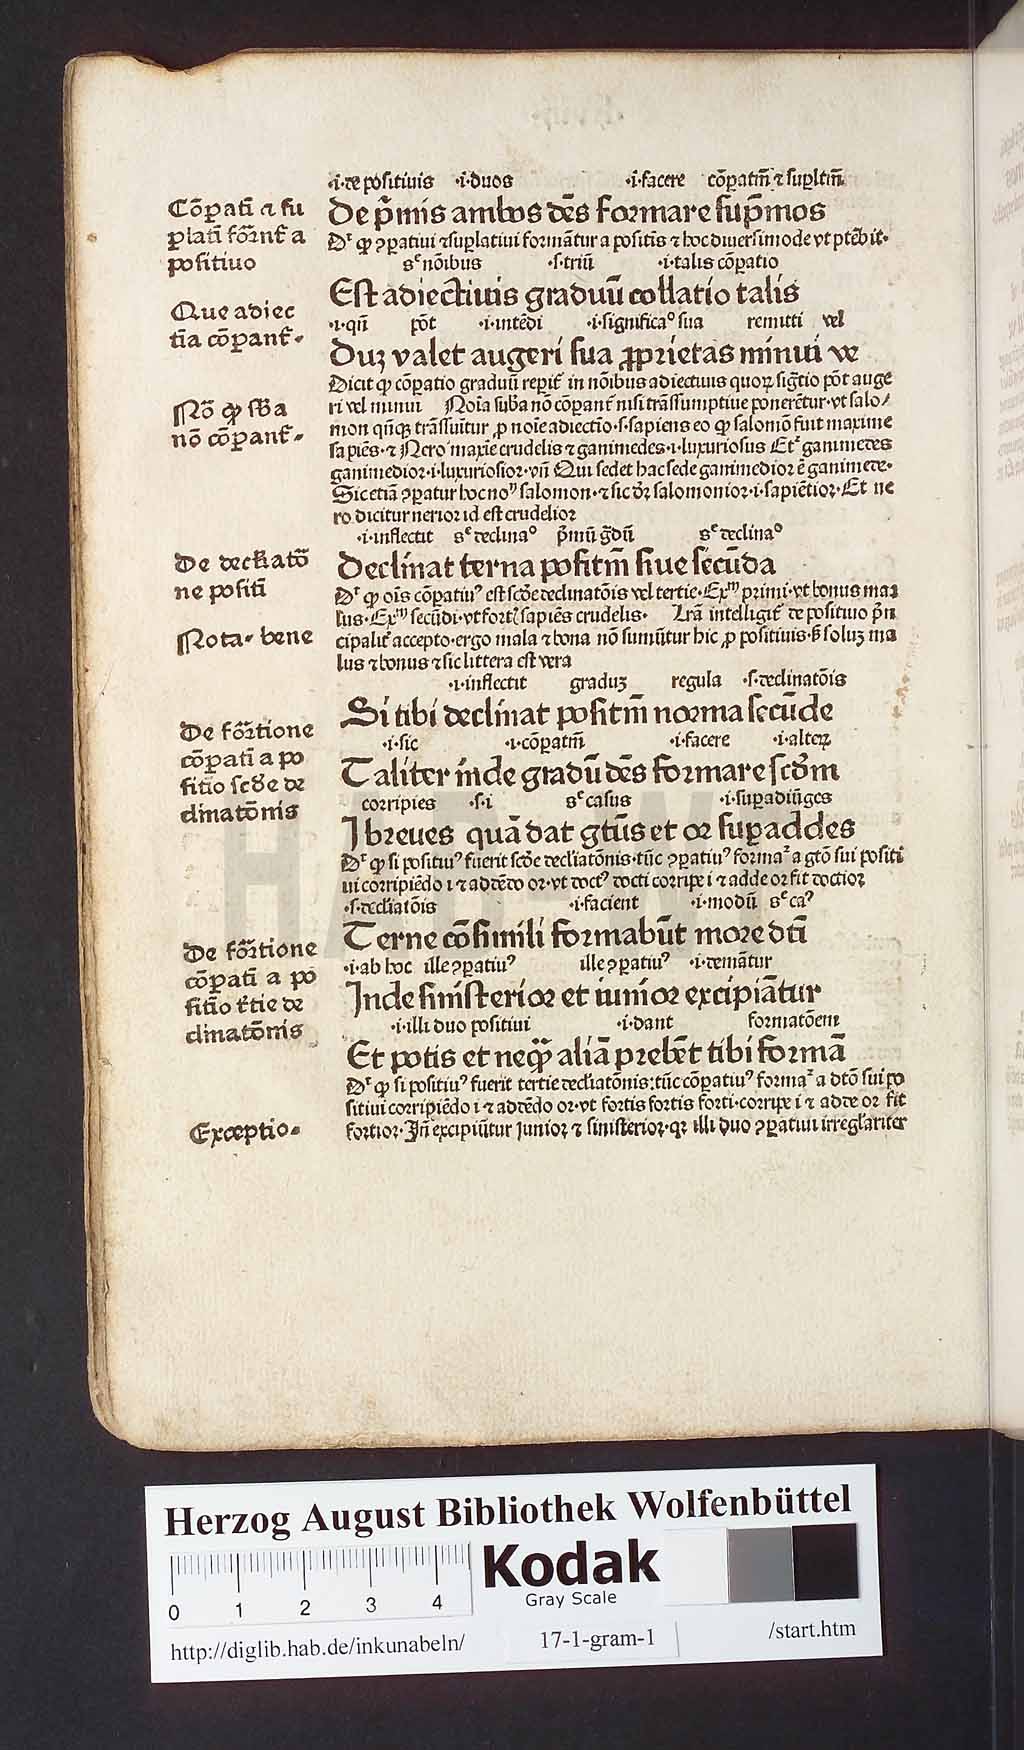 ·i·de positiuis ·i·duos ·i·facere cōꝑatm̄ ⁊ suꝑltm̄
Cōꝑati ⁊ su
ꝑlati fōrnt̄ a
positiuo
De p̄mis ambos dēs formare sup̄mos
Dr̄ ꝙ ꝯꝑatiui ⁊ suꝑlatiui formātur a positis ⁊ hoc diuersimode vt ptēbit·
sc̄ nōibus ·s·triū ·i·talis cōꝑatio
Que adiec
tia cōꝑant̄·
Est adiectiuis graduū collatio talis
·i·qn̄ pōt ·i·intēdi ·i·significaº sua remitti vel
Duꝫ valet augeri sua ꝓprietas minui ve
Dicit ꝙ cōꝑatio graduū reꝑit̄ in nōibus adiectiuis quoꝝ sigtio pōt auge
Nō ꝙ sb̄a
nō cōꝑant̄·
ri vel minui Noīa sub̄a nō cōꝑant̄ nisi trāssumptiue ponerētur·vt salo/
mon qn̄qꝫ trāssuitur ꝓ noīe adiectio·s·sapiens eo ꝙ salomō fuit maxime
sapiēs·⁊ Nero maxīe crudelis ⁊ ganimedes·i·luxuriosus Etᷣ ganimetes
ganimedior·i·luxuriosior·vn̄ Qui sedet hac sede ganimedior ē ganimete·
Sic etiā ꝯꝑatur hoc noᷠ salomon·⁊ sic dꝝ salomonior·i·sapiētior·Et ne
ro dicitur nerior id est crudelior
·i·inflectit sc̄ declinaº p̄mū gdū sc̄ declinaº
De declīatō
ne positi
Declinat terna positm̄ siue secūda
Dr̄ ꝙ oīs cōꝑatiuꝰ est scd̄e declinatōis vel tertie·Exᷠ primi·vt bonus ma
lus·Exᷠ secūdi·vt fortis sapiēs crudelis· Lrā intelligit̄ de positiuo p̄n
Nota· bene
cipalit̄ accepto·ergo mala ⁊ bona nō sumūtur hic ꝓ positiuis·ẜ soluꝫ ma
lus ⁊ bonus ⁊ sic littera est vera
·i·inflectit graduꝫ regula ·s·declinatōis
De fōrtione
cōꝑati a po
sitio scd̄e de
clinatōnis
Si tibi declinat positm̄ norma secūde
·i·sic ·i·cōꝑatm̄ ·i·facere ·i·alterꝝ
Taliter inde gradū dēs formare scd̄m
corripies ·s·i sc̄ casus ·i·suꝑadiūges
I breues quā dat gtūs et or suꝑaddes
Dr̄ ꝙ si positiuꝰ fuerit scd̄e declīatōnis·tūc ꝯꝑatiuꝰ formaᷣ a gtō sui positi
ui corripiēdo i ⁊ addēdo or·vt doctꝰ docti corripe i ⁊ adde or fit doctior
·s·declīatōis ·i·facient ·i·modū sc̄ caꝰ
De fōrtione
cōꝑati a po
sitio t̄tie de
clinatōnis
Terne cōsimili formabūt more dti
·i·ab hoc ille ꝯꝑatiuꝰ ille ꝯꝑatiuꝰ ·i·demātur
Inde sinisterior et iunior excipiātur
·i·illi duo positiui ·i·dant formatōem
Et potis et neqꝫ aliā prebēt tibi formā
Dr̄ ꝙ si positiuꝰ fuerit tertie declīatōnis:tūc cōꝑatiuꝰ formaᷣ a dtō sui po
sitiui corripiēdo i ⁊ addēdo or·vt fortis fortis forti·corripe i ⁊ adde or fit
Exceptio·
fortior·In̄ excipiūtur iunior ⁊ sinisterior·qꝛ illi duo ꝯꝑatiui irregl̄ariter
HAB-W
Herzog August Bibliothek Wolfenbüttel
Kodak
Gray Scale
0 1 2 3 4
http://diglib.hab.de/inkunabeln/ 17-1-gram-1 /start.htm